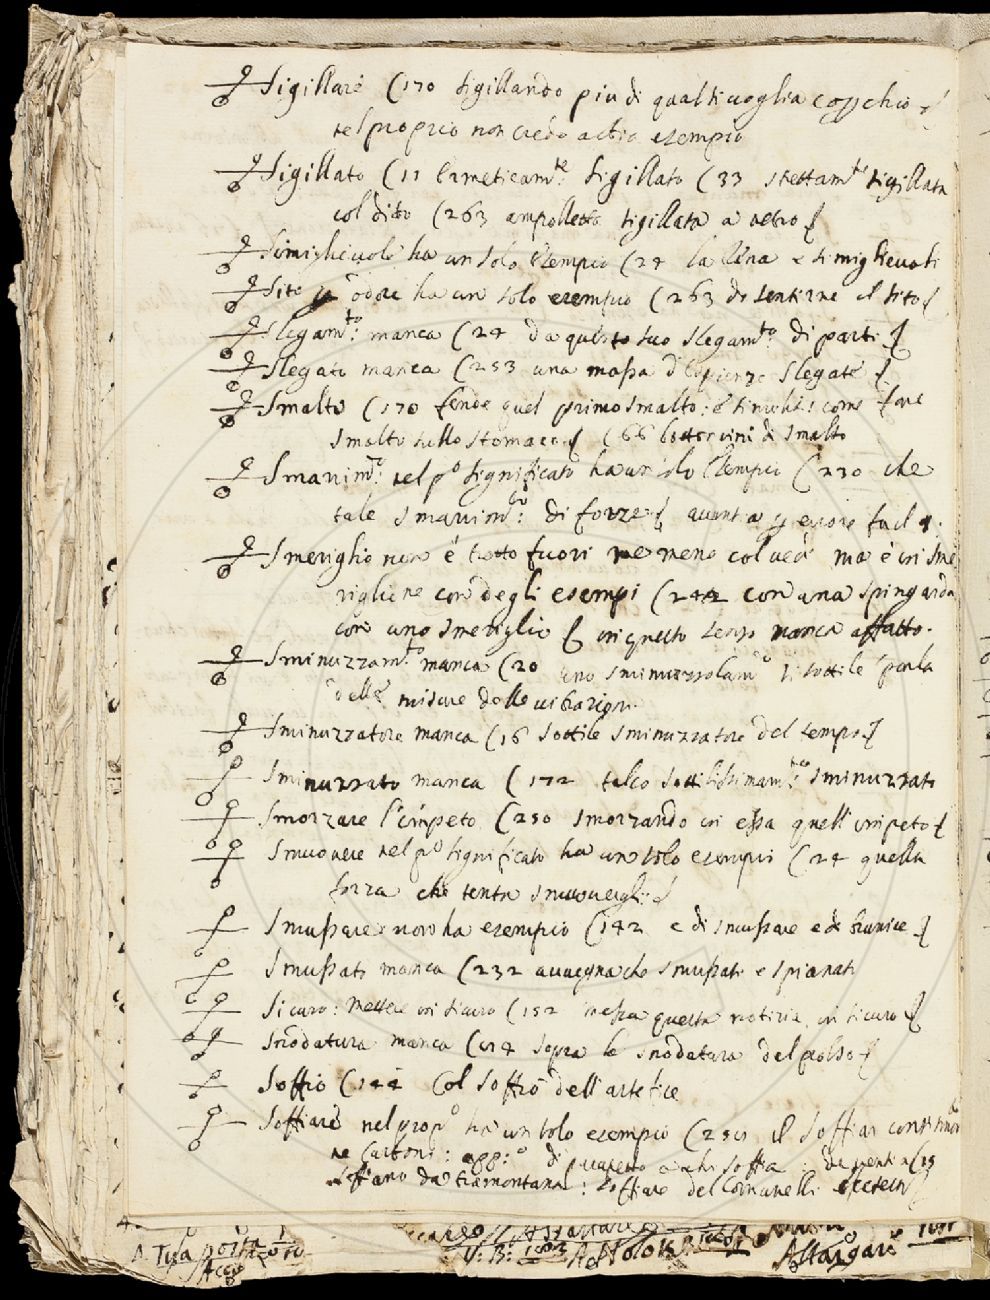 Sigillare (170 sigillando piu di qualsivoglia coperchio
nel proprio non credo abbia esempio
Sigillato (11 ermeticam.te sigillato (33 strettam.te sigillata
col dito (263 ampolletta sigillata a vetro
Simiglievole ha un solo esempio (24 la lena e simiglievoli
Sito p odore ha un solo esempio (263 di sentirne il sito
Slegam.to manca (24 da questo suo slegam.to di parti
Slegato manca (253 una massa di slegate
Smalto (170 fende quel primo smalto: e simili: come fare
smalto sullo stomaco (66 bottoncini di smalto
Smarrim.to nel p.o significato ha un solo esempio (230 che
tale smarrim.to di forze avvenga p
Smeriglio non è tratto fuori ne meno col vedi ma è in Sme
riglione con degli esempi (244 con una spingarda
con uno smeriglio in questo senso manca affatto.
Sminuzzam.to manca (20 uno sminuzzolam.o sì sottile
delle misure delle vibrazioni.
Sminuzzatore manca (16 sottile sminuzzatore del tempo
Sminuzzato manca (172 talco sottilissimam.te sminuzzato
Smorzare l'impeto (250 smorzando in essa quell'impeto
Smuovere nel p.o significato ha un solo esempio (24 quella
forza che tenta smuovergli
Smussare non ha esempio (142 e di smussare e di brunire
Smussato manca (232 avvegnache smussati e spianati
Sicuro: mettere in sicuro (152 messa questa notizia in sicuro
Snodatura manca (214 sopra la snodatura del polso
Soffio (144 Col soffio dell'artefice
Soffiare nel prop.o ha un solo esempio (250 il soffiar
ne carboni: agg:o di a chi soffia: de venti (15
soffiano da tramontana: soffiare del